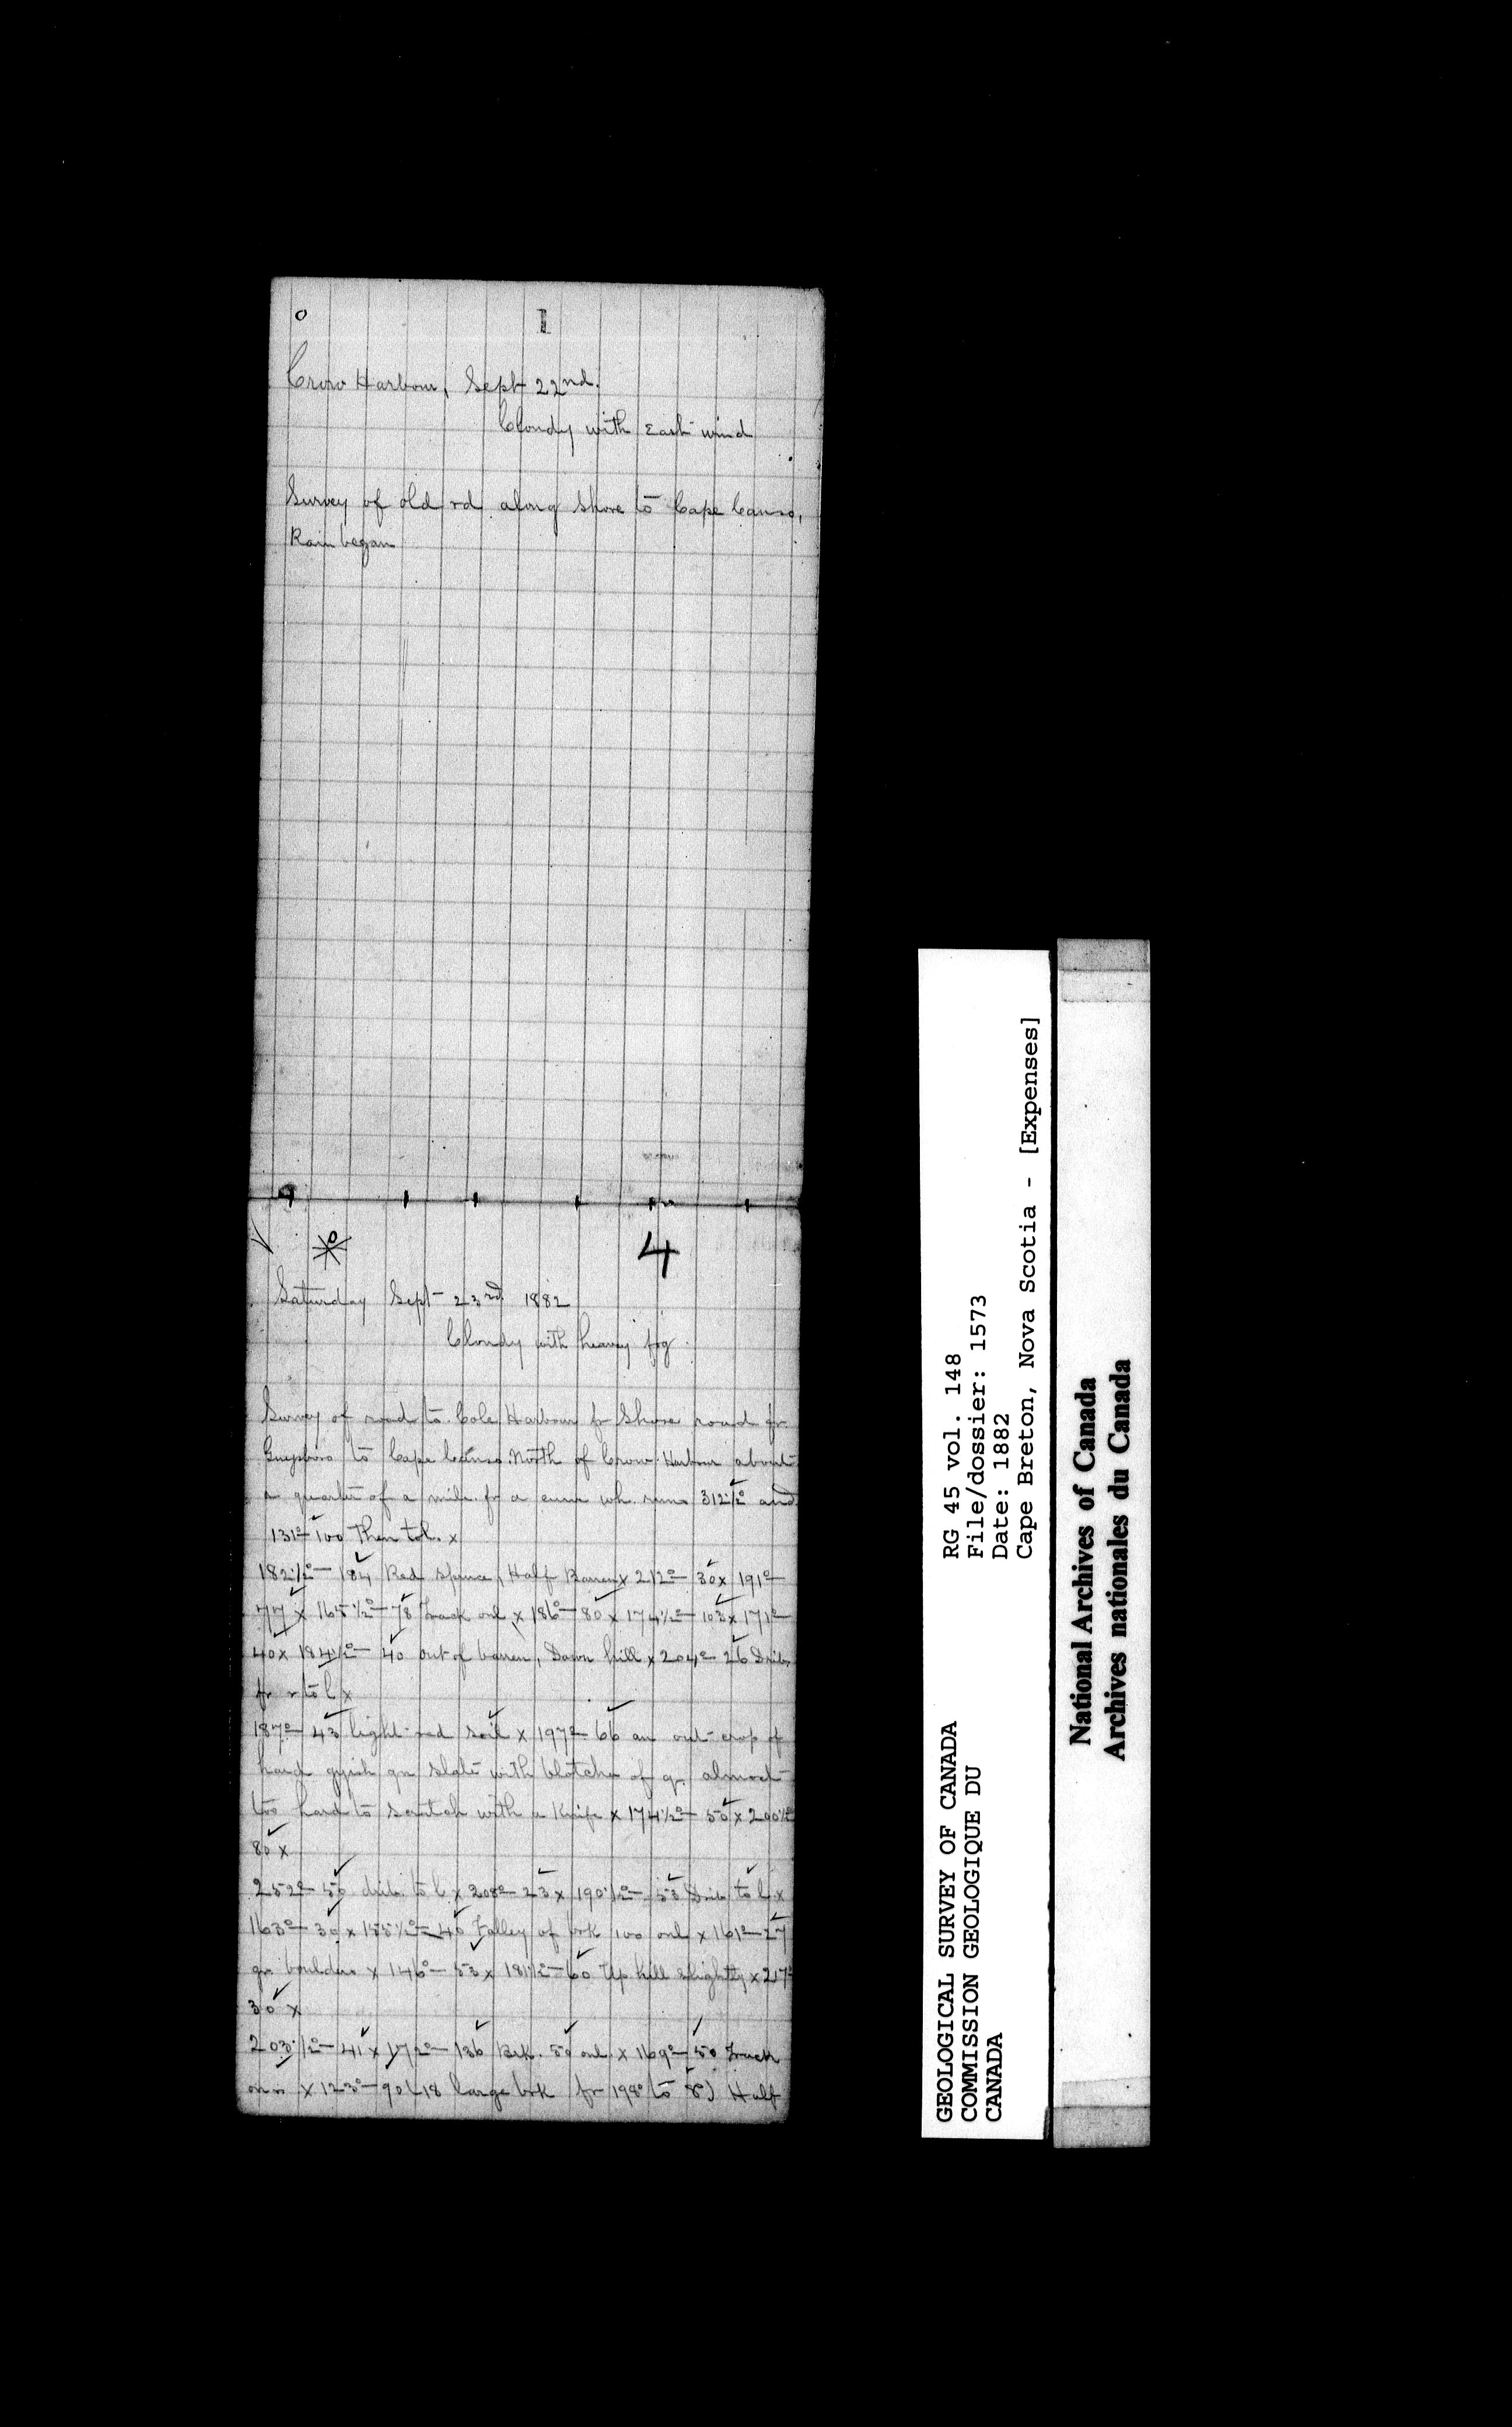 o 1
Crow Harbour, Sept 22nd.
Cloudy with East wind
Survey of old rd along shore to Cape Canso,
Rain began
o 4
Saturday Sept 23rd 1882
Cloudy with heavy fog
Survey of road to Cole Harbour fr Shore road fr
Guysboro to Cape Canso. North of Crow Harbour about
a quarter of a mile fr a curve wh. runs 312½° and
131°-100 Then to l. x
182½°-184 Red spruce, Half Barren x 212°-30 x 191°-
77 x 165½°-78 Track onl x 186°-80 x 174½°-103 x 171°-
40 x 184½°-40 out of barren, Down hill x 204°-26 Drib.
fr r to l x
187°-43 light red soil x 197°-66 an out-crop of
hard gyish gn slate with blotches of q. almost
too hard to scratch with a Knife x 174½°-50 x 200½°
80 x
252°-50 drib. to l x 208°-23 x 190½°-53 Drib to l x
163°-30 x 155½°-40 Valley of brk 100 onl x 161°-27
gr. boulders x 146°-53 x 181½°-60 Up hill slightly x 217°
30 x
203½°-41 x 172°-136 Brk. 50 onl. x 169°-50 Track
on r x 123°-90 (18 large brk fr 198° to 8°) Half
GEOLOGICAL SURVEY OF CANADA
COMMISSION GEOLOGIQUE DU
CANADA
RG 45 vol. 148
File/dossier: 1573
Date: 1882
Cape Breton, Nova Scotia - [Expenses]
National Archives of Canada
Archives nationales du Canada